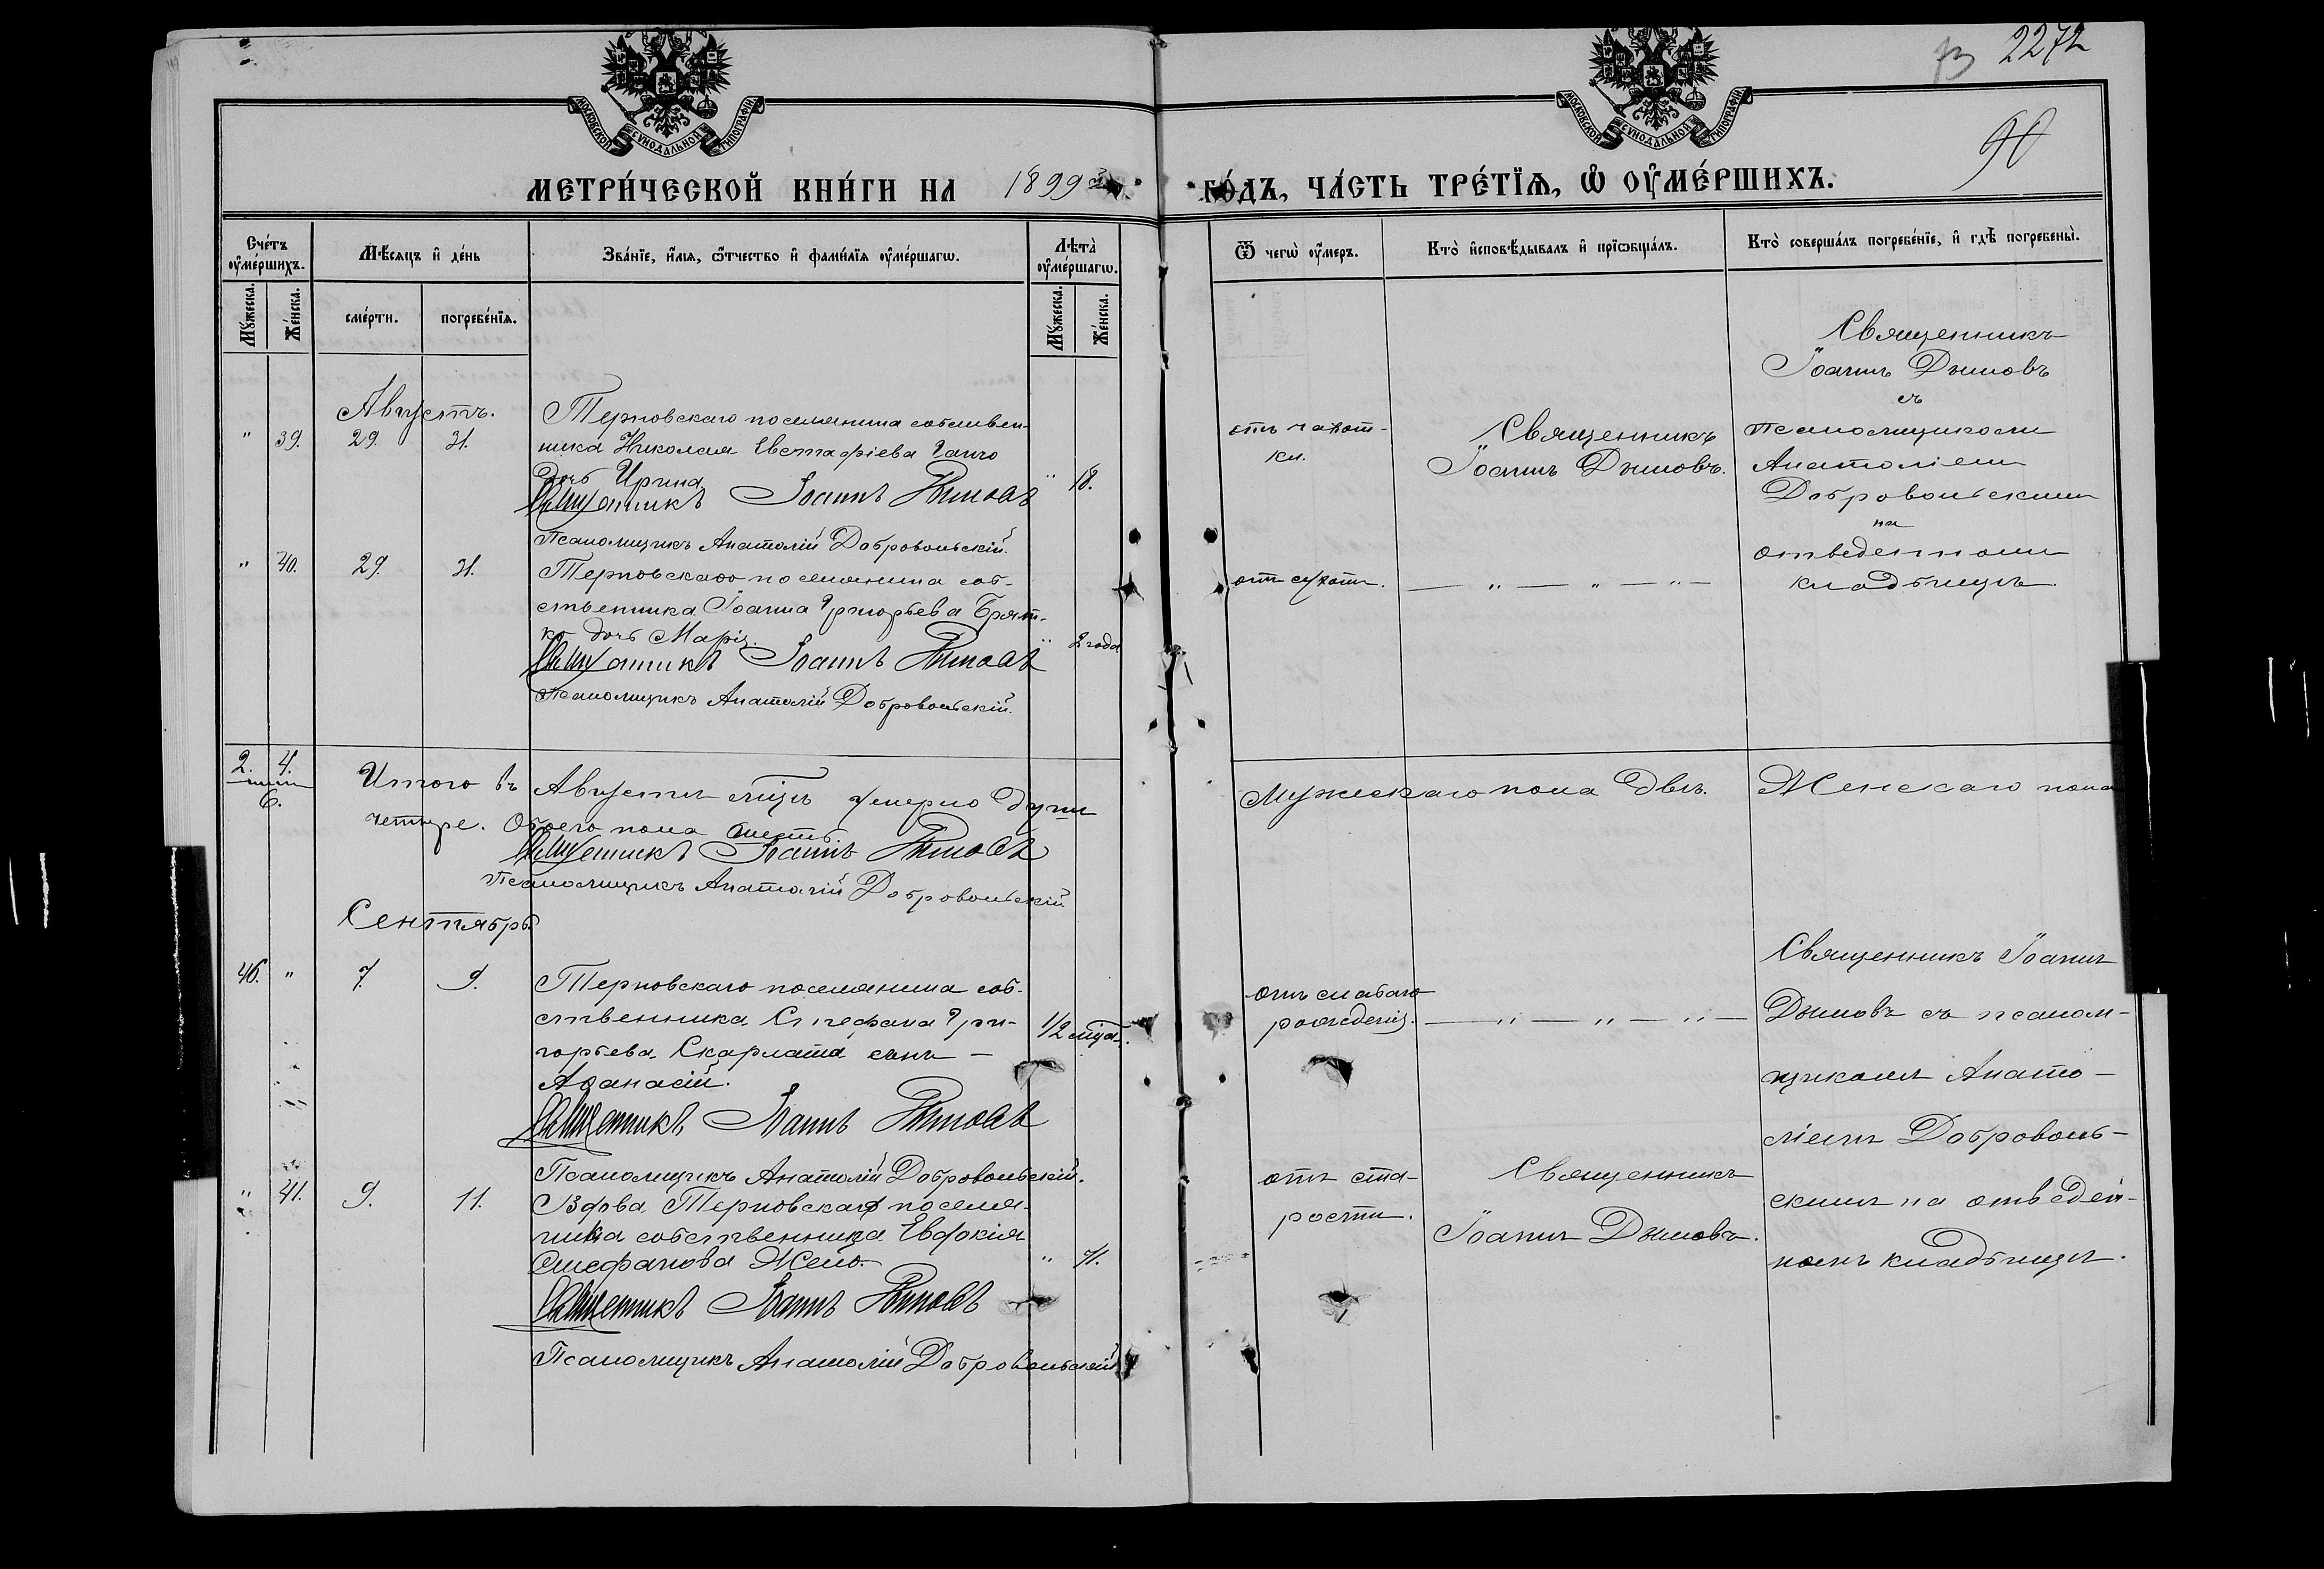 2272
90
МОСКОВСКОЙ СѴНОДАЛЬНОЙ ТИПОГРАФІИ
МОСКОВСКОЙ СѴНОДАЛЬНОЙ ТИПОГРАФІИ
МЕТРИ́ЧЕСКОЙ КНИ́ГИ НА 1899 ГО́ДЪ, ЧА́СТЬ ТРЕ́ТЇѦ, Ѡ҆ ОУ҆МЕ́РШИХЪ.
Сче́тъ оу҆ме́ршихъ.
Мꙋ́жеска.
Же́нска.
Мѣ́сяцъ и҆ де́нь
сме́рти.
погребе́нїѧ.
Зва́нїе, и҆́мѧ, ѻ҆́тчество и҆ фами́лїѧ оу҆ме́ршагѡ.
Лѣта̀ оу҆ме́ршагѡ.
Мꙋ́жеска.
Же́нска.
Ѿ чегѡ̀ оу҆́меръ.
Кто̀ и҆сповѣ́дывалъ и҆ прїѡбща́лъ.
Кто̀ соверша́лъ погребе́нїе, и҆ гдѣ̀ погребены̀.
Августъ.
" 39. 29. 31.
Терновскаго поселянина собствен-
ника Николая Евстафіева Ганчо
дочь Ирина " 18.
Священникъ Іоаннъ Дымовъ
Псаломщикъ Анатолій Добровольскій.
отъ чахот-
ки.
Священникъ
Іоаннъ Дымовъ.
Священникъ
Іоаннъ Дымовъ
съ
псаломщикомъ
Анатоліемъ
Добровольскимъ
на
отведенномъ
кладбищѣ.
" 40. 29. 31.
Терновскаго поселянина соб-
ственника Іоанна Григорьева
дочь Марія. " 2 года
Священникъ Іоаннъ Дымовъ
Псаломщикъ Анатолій Добровольскій.
— " — " — " —
2. 4.
6.
Итого въ Августѣ мцѣ умерло душъ Мужескаго пола двѣ. Женскаго пола
четыре. Обоего пола шесть.
Священникъ Іоаннъ Дымовъ
Псаломщикъ Анатолій Добровольскій
Сентябрь
46. " 7. 9.
Терновскаго поселянина соб-
ственника Стефана Гри-
горьева Скарлата сынъ —
Афанасій.
1/2 мца.
Священникъ Іоаннъ Дымовъ
Псаломщикъ Анатолій Добровольскій.
отъ слабаго
рожденія. — " — " — " —
Священникъ Іоаннъ
Дымовъ съ псалом-
щикомъ Анато-
ліемъ Доброволь-
скимъ на отведен-
номъ кладбищѣ.
" 41. 9. 11.
Вдова Терновскаго поселя-
нина собственника Евдокія
Стефанова Жело " 71.
Священникъ Іоаннъ Дымовъ
Псаломщикъ Анатолій Добровольскій
отъ ста-
рости.
Священникъ
Іоаннъ Дымовъ.